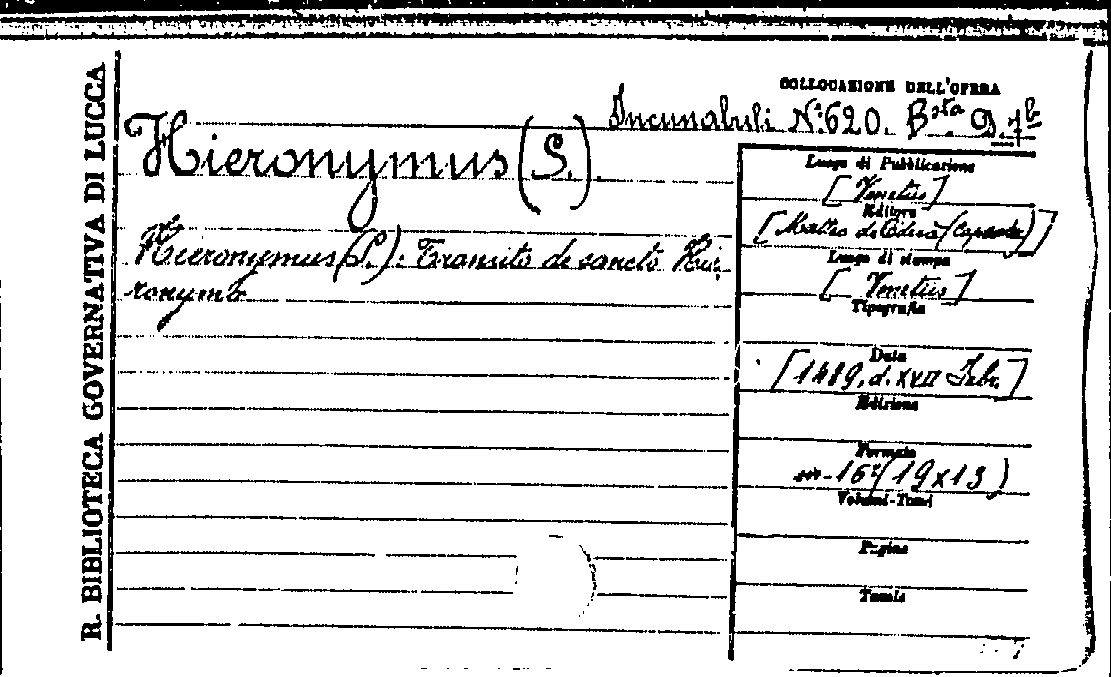 R. BIBLIOTECA GOVERNATIVA DI LUCCA
COLLOCAZIONE DELL'OPERA
Incunabuli N.° 620. B.sta 9.
Hieronymus (S.)
Hieronymus (S.): Transito de sancto Hie-
ronymo
Luogo di Pubblicazione
[Venetiis]
Editore
[Matteo di
Luogo di stampa
[Venetiis]
Tipografia
Data
[1489, d. XVII Febr.]
Edizione
Formato
in-16° (19x13)
Volumi-Tomi
Pagine
Tavole